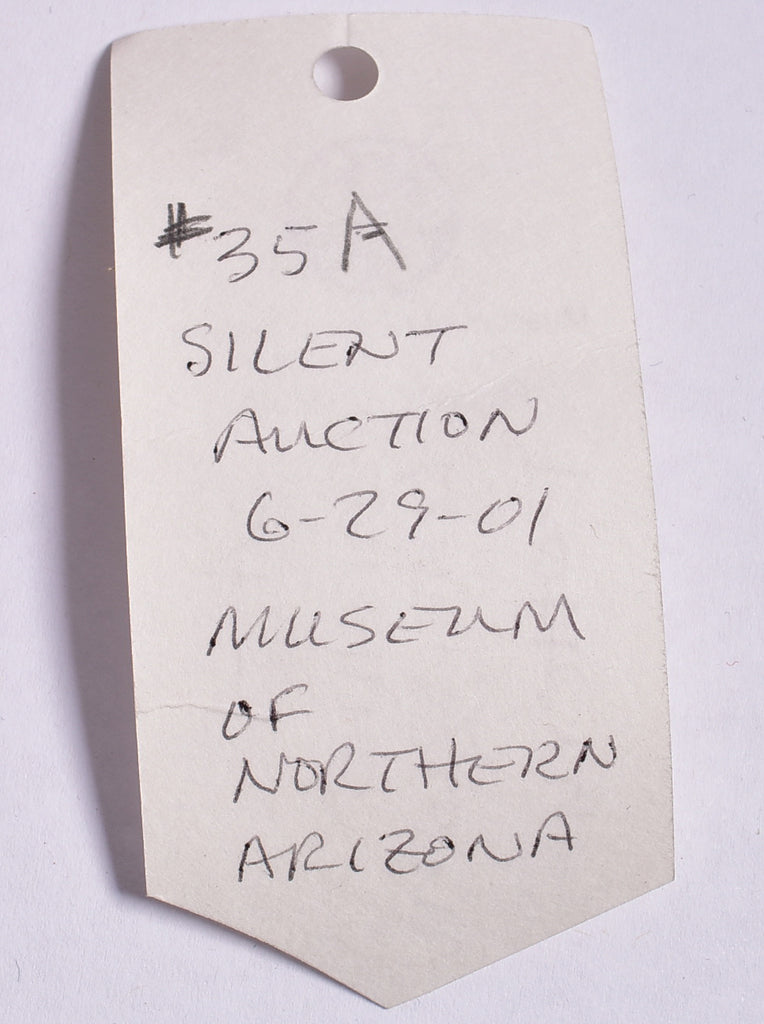 #35A
SILENT
AUCTION
6-29-01
MUSEUM
OF
NORTHERN
ARIZONA